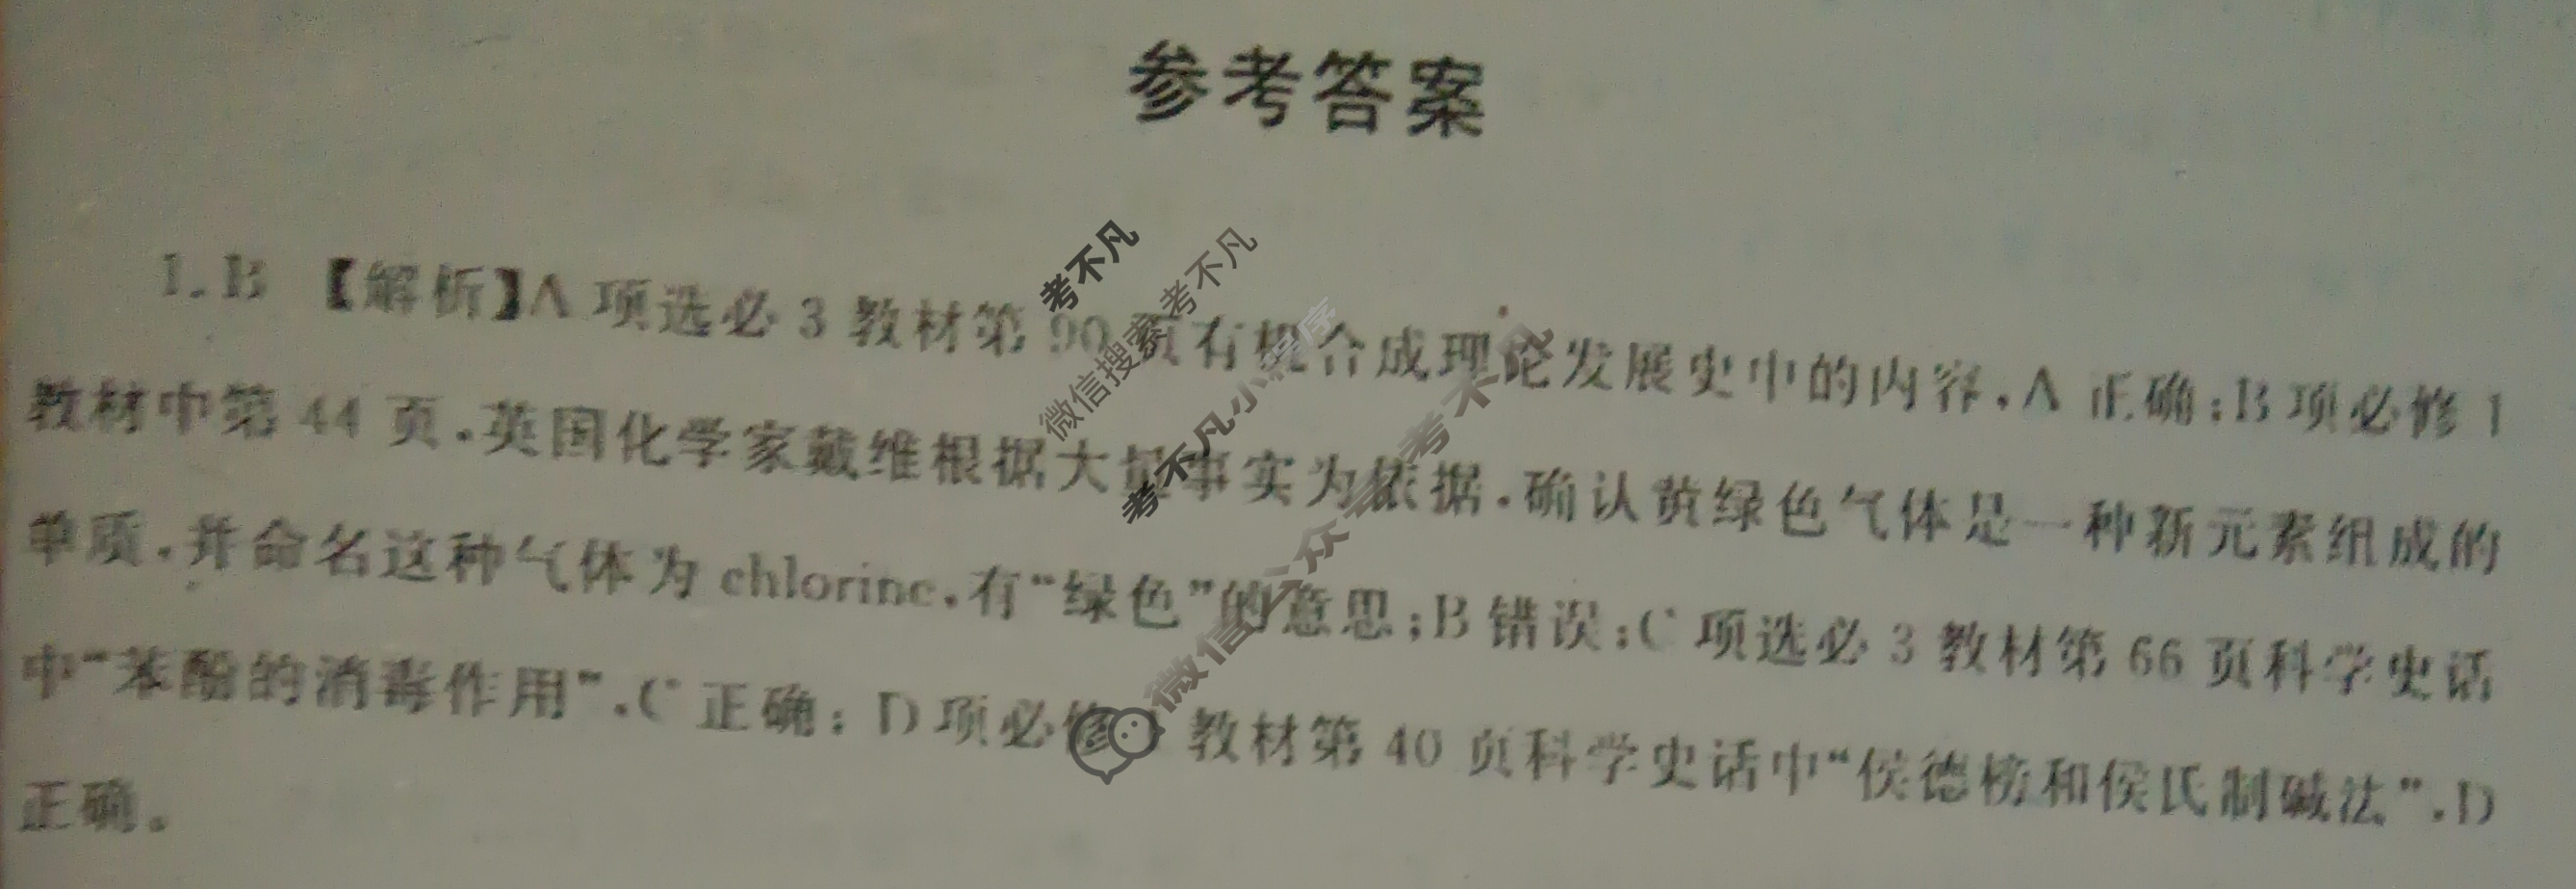 参考答案
1.B 【解析】A 项选必 3 教材第 90 页有机合成理论发展史中的内容,A 正确;B 项必修 1
教材中第 44 页,英国化学家戴维根据大量事实为依据,确认黄绿色气体是一种新元素组成的
单质,并命名这种气体为 chlorine,有“绿色”的意思;B 错误;C 项选必 3 教材第 66 页科学史话
中“苯酚的消毒作用”,C 正确;D 项必修 1 教材第 40 页科学史话中“侯德榜和侯氏制碱法”,D
正确。
考不凡
微信搜索考不凡
考不凡小程序
微信公众号考不凡